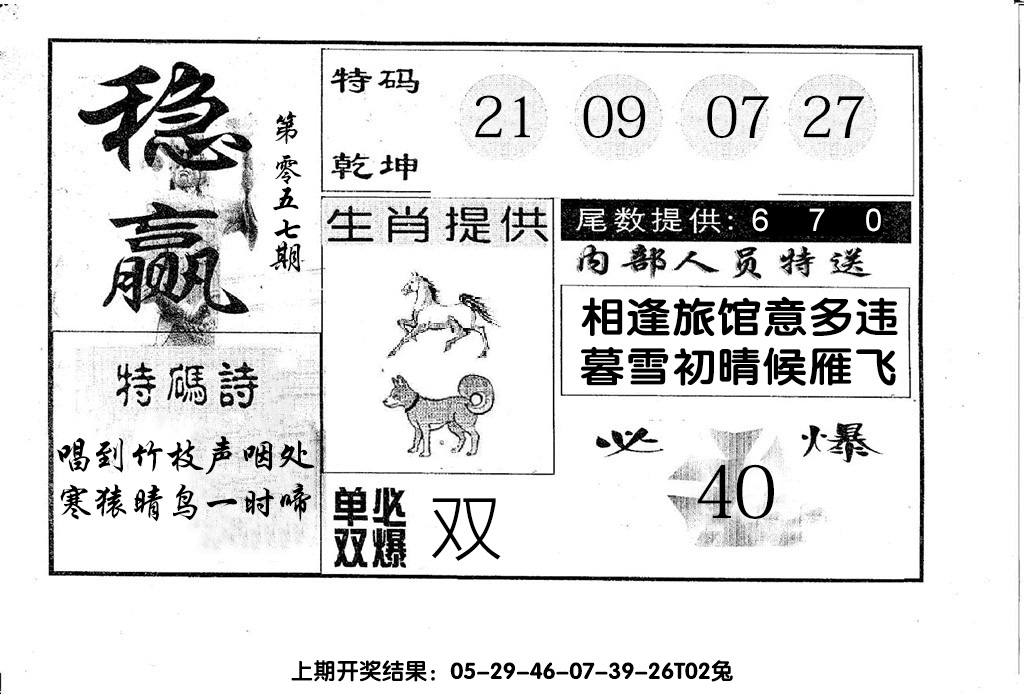 稳赢
第零五七期
特码
乾坤
21 09 07 27
生肖提供
尾数提供: 6 7 0
内部人员特送
相逢旅馆意多违
暮雪初晴候雁飞
特碼詩
唱到竹枝声咽处
寒猿晴鸟一时啼
必 爆
40
单双
必爆
双
上期开奖结果：05-29-46-07-39-26T02兔